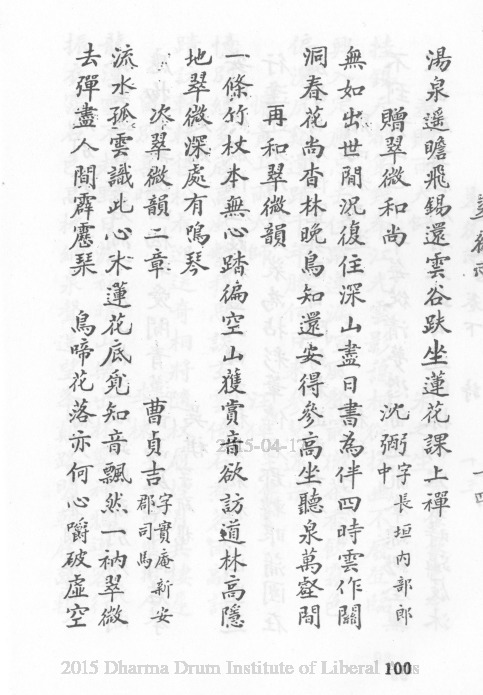 湯泉遥瞻飛錫還雲谷趺坐蓮花課上禪
贈翠微和尚 沈弼中字長垣內部郎
無如出世閒況復住深山盡日書為伴四時雲作關
洞春花尚杳林晚鳥知還安得參高坐聽泉萬壑間
再和翠微韻
一條竹杖本無心踏徧空山獲賞音欲訪道林高隱
地翠微深處有鳴琴
次翠微韻二章 曹貞吉字實庵新安郡司馬
流水孤雲識此心木蓮花底覓知音飄然一衲翠微
去彈盡人間霹靂琴 鳥啼花落亦何心嚼破虛空
2015-04-1
100
2015 Dharma Drum Institute of Liberal Arts